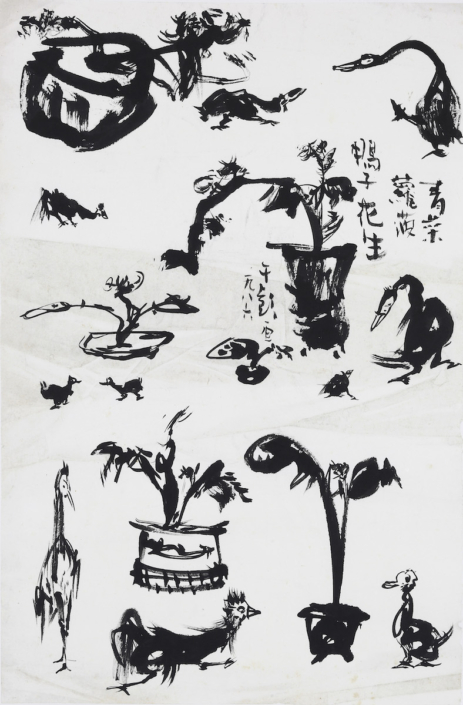 青菜
蘿蔔
鴨子花生
一九八六